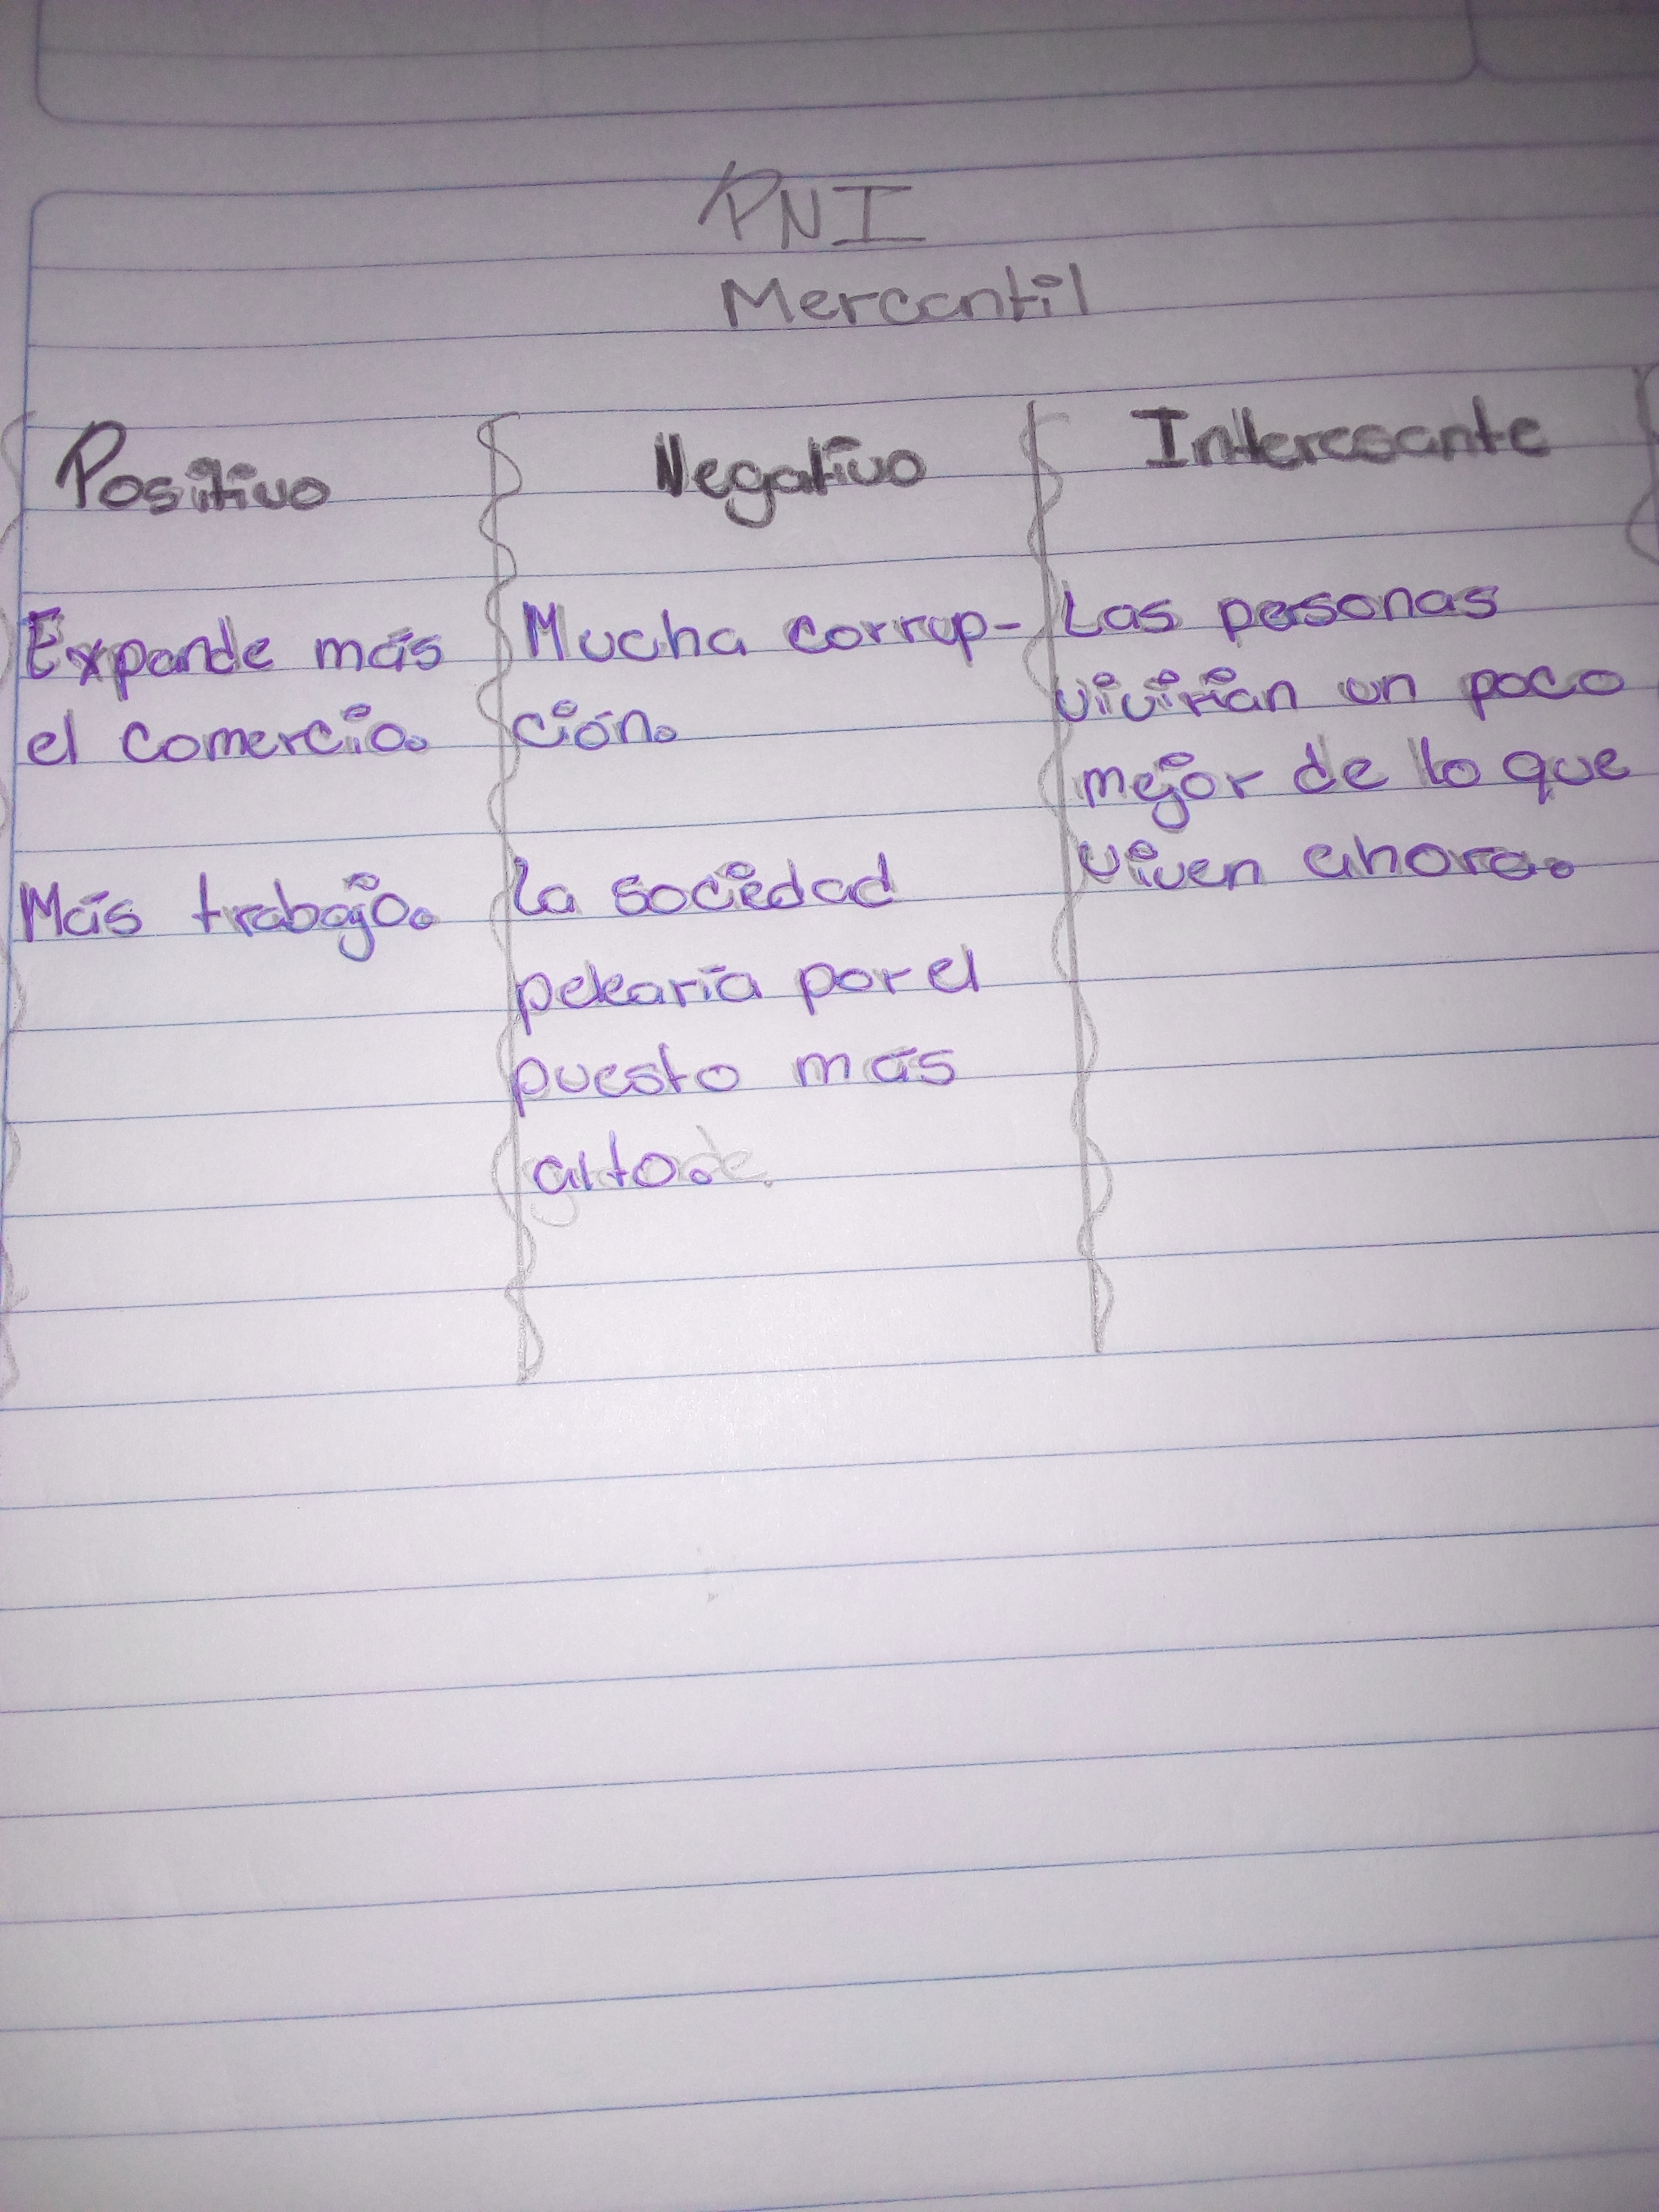 PNI
Mercantil
Positivo
Expande más
el comercio.
Más trabajo.
Negativo
Mucha corrup-
ción.
la sociedad
pelearía por el
puesto más
alto.
Interesante
Las personas
vivirían un poco
mejor de lo que
viven ahora.